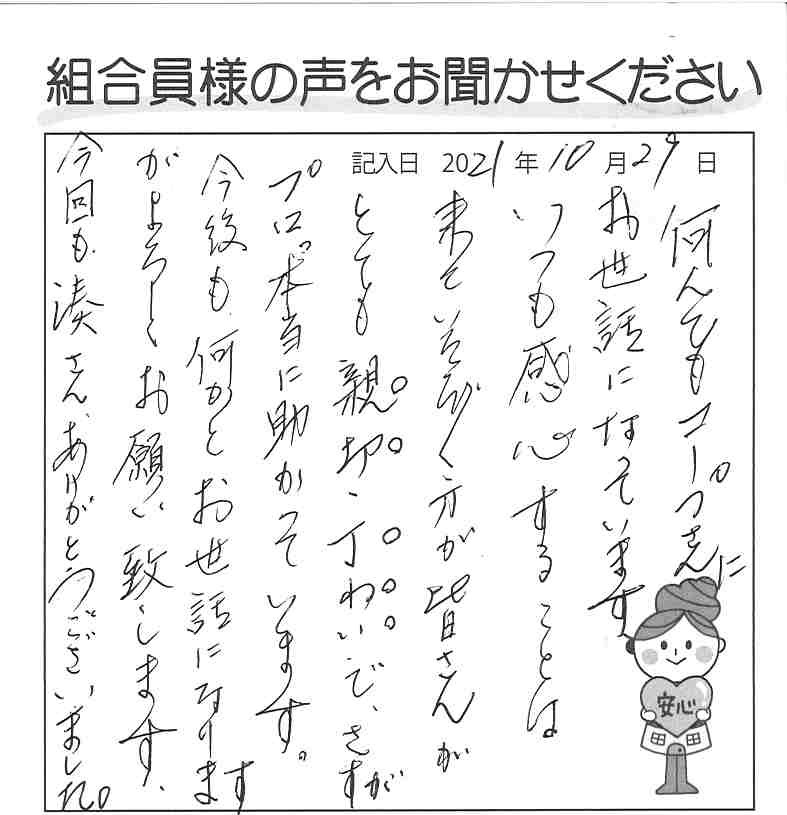 組合員様の声をお聞かせください
記入日 2021年10月29日
何んでもコープさんに
お世話になっています
いつも感心することは
来ていただく方が皆さんが
とても親切、丁ねいで、さすが
プロ。本当に助かっています。
今後も何かとお世話になります
がよろしくお願い致します、
今回も湊さん、ありがとうございました。
安心